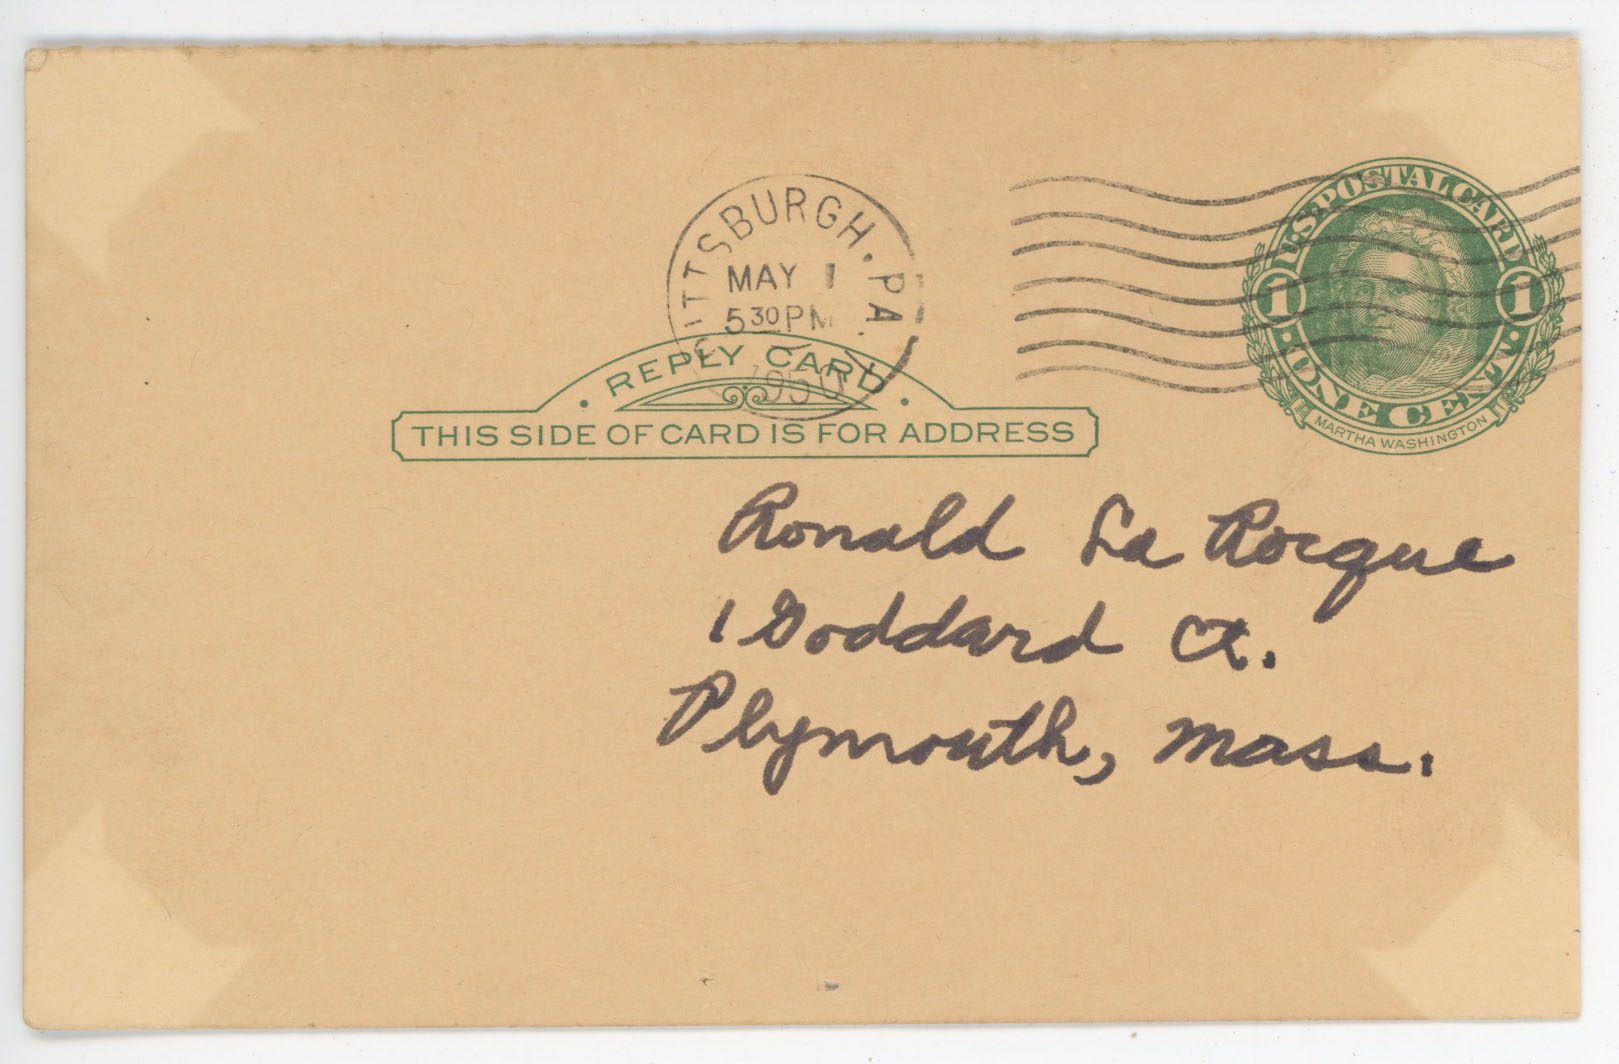 PITTSBURGH, PA.
MAY 1
5 30 PM
1950
U.S. POSTAL CARD
1 1
ONE CENT
MARTHA WASHINGTON
REPLY CARD
THIS SIDE OF CARD IS FOR ADDRESS
Ronald La Rocque
1 Goddard Ct.
Plymouth, Mass.